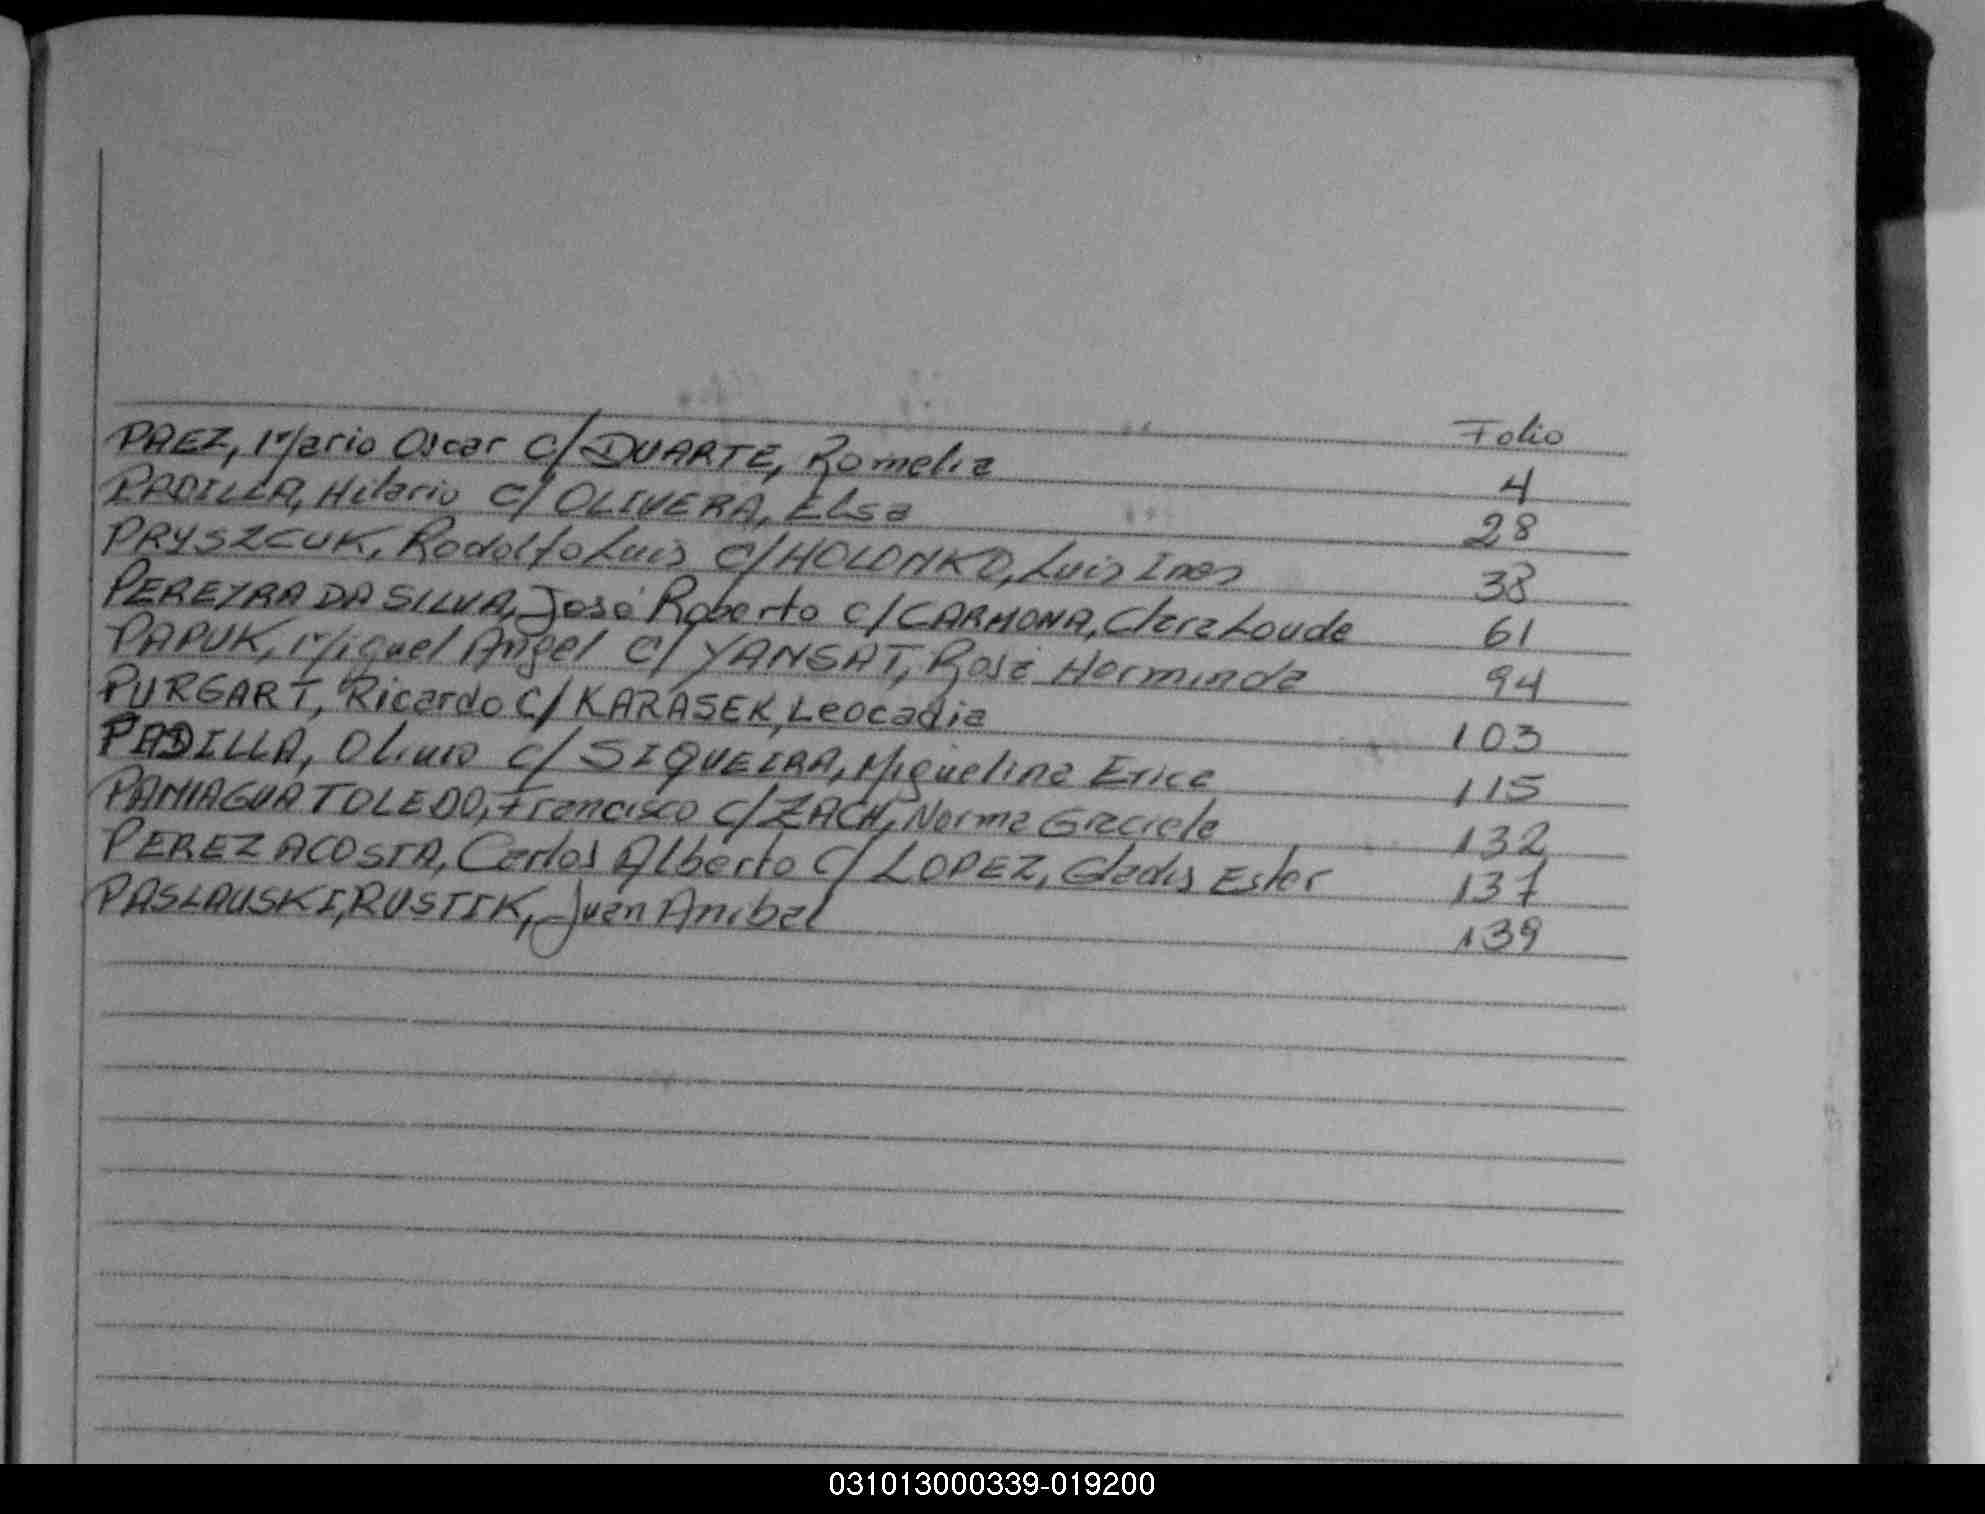 Folio
PAEZ, Mario Oscar C/ DUARTE, Romelia 4
PADILLA, Hilario C/ OLIVERA, Elsa 28
PRYSZCUK, Rodolfo Luis C/ HOLONKO, Luis Ines 38
PEREYRA DA SILVA, José Roberto C/ CARMONA, Clara Loude 61
PAPUK, Miguel Angel C/ YANSAT, Rosa Herminda 94
PURGART, Ricardo C/ KARASEK, Leocadia 103
PADILLA, C/ SIQUEIRA, Miguelina Erica 115
PANIAGUA TOLEDO, Francisco C/ ZACH, Norma Graciela 132
PEREZ ACOSTA, Carlos Alberto C/ LOPEZ, Gladis Ester 137
PASLAUSKI, RUSTIK, Juan Anibal 139
031013000339-019200